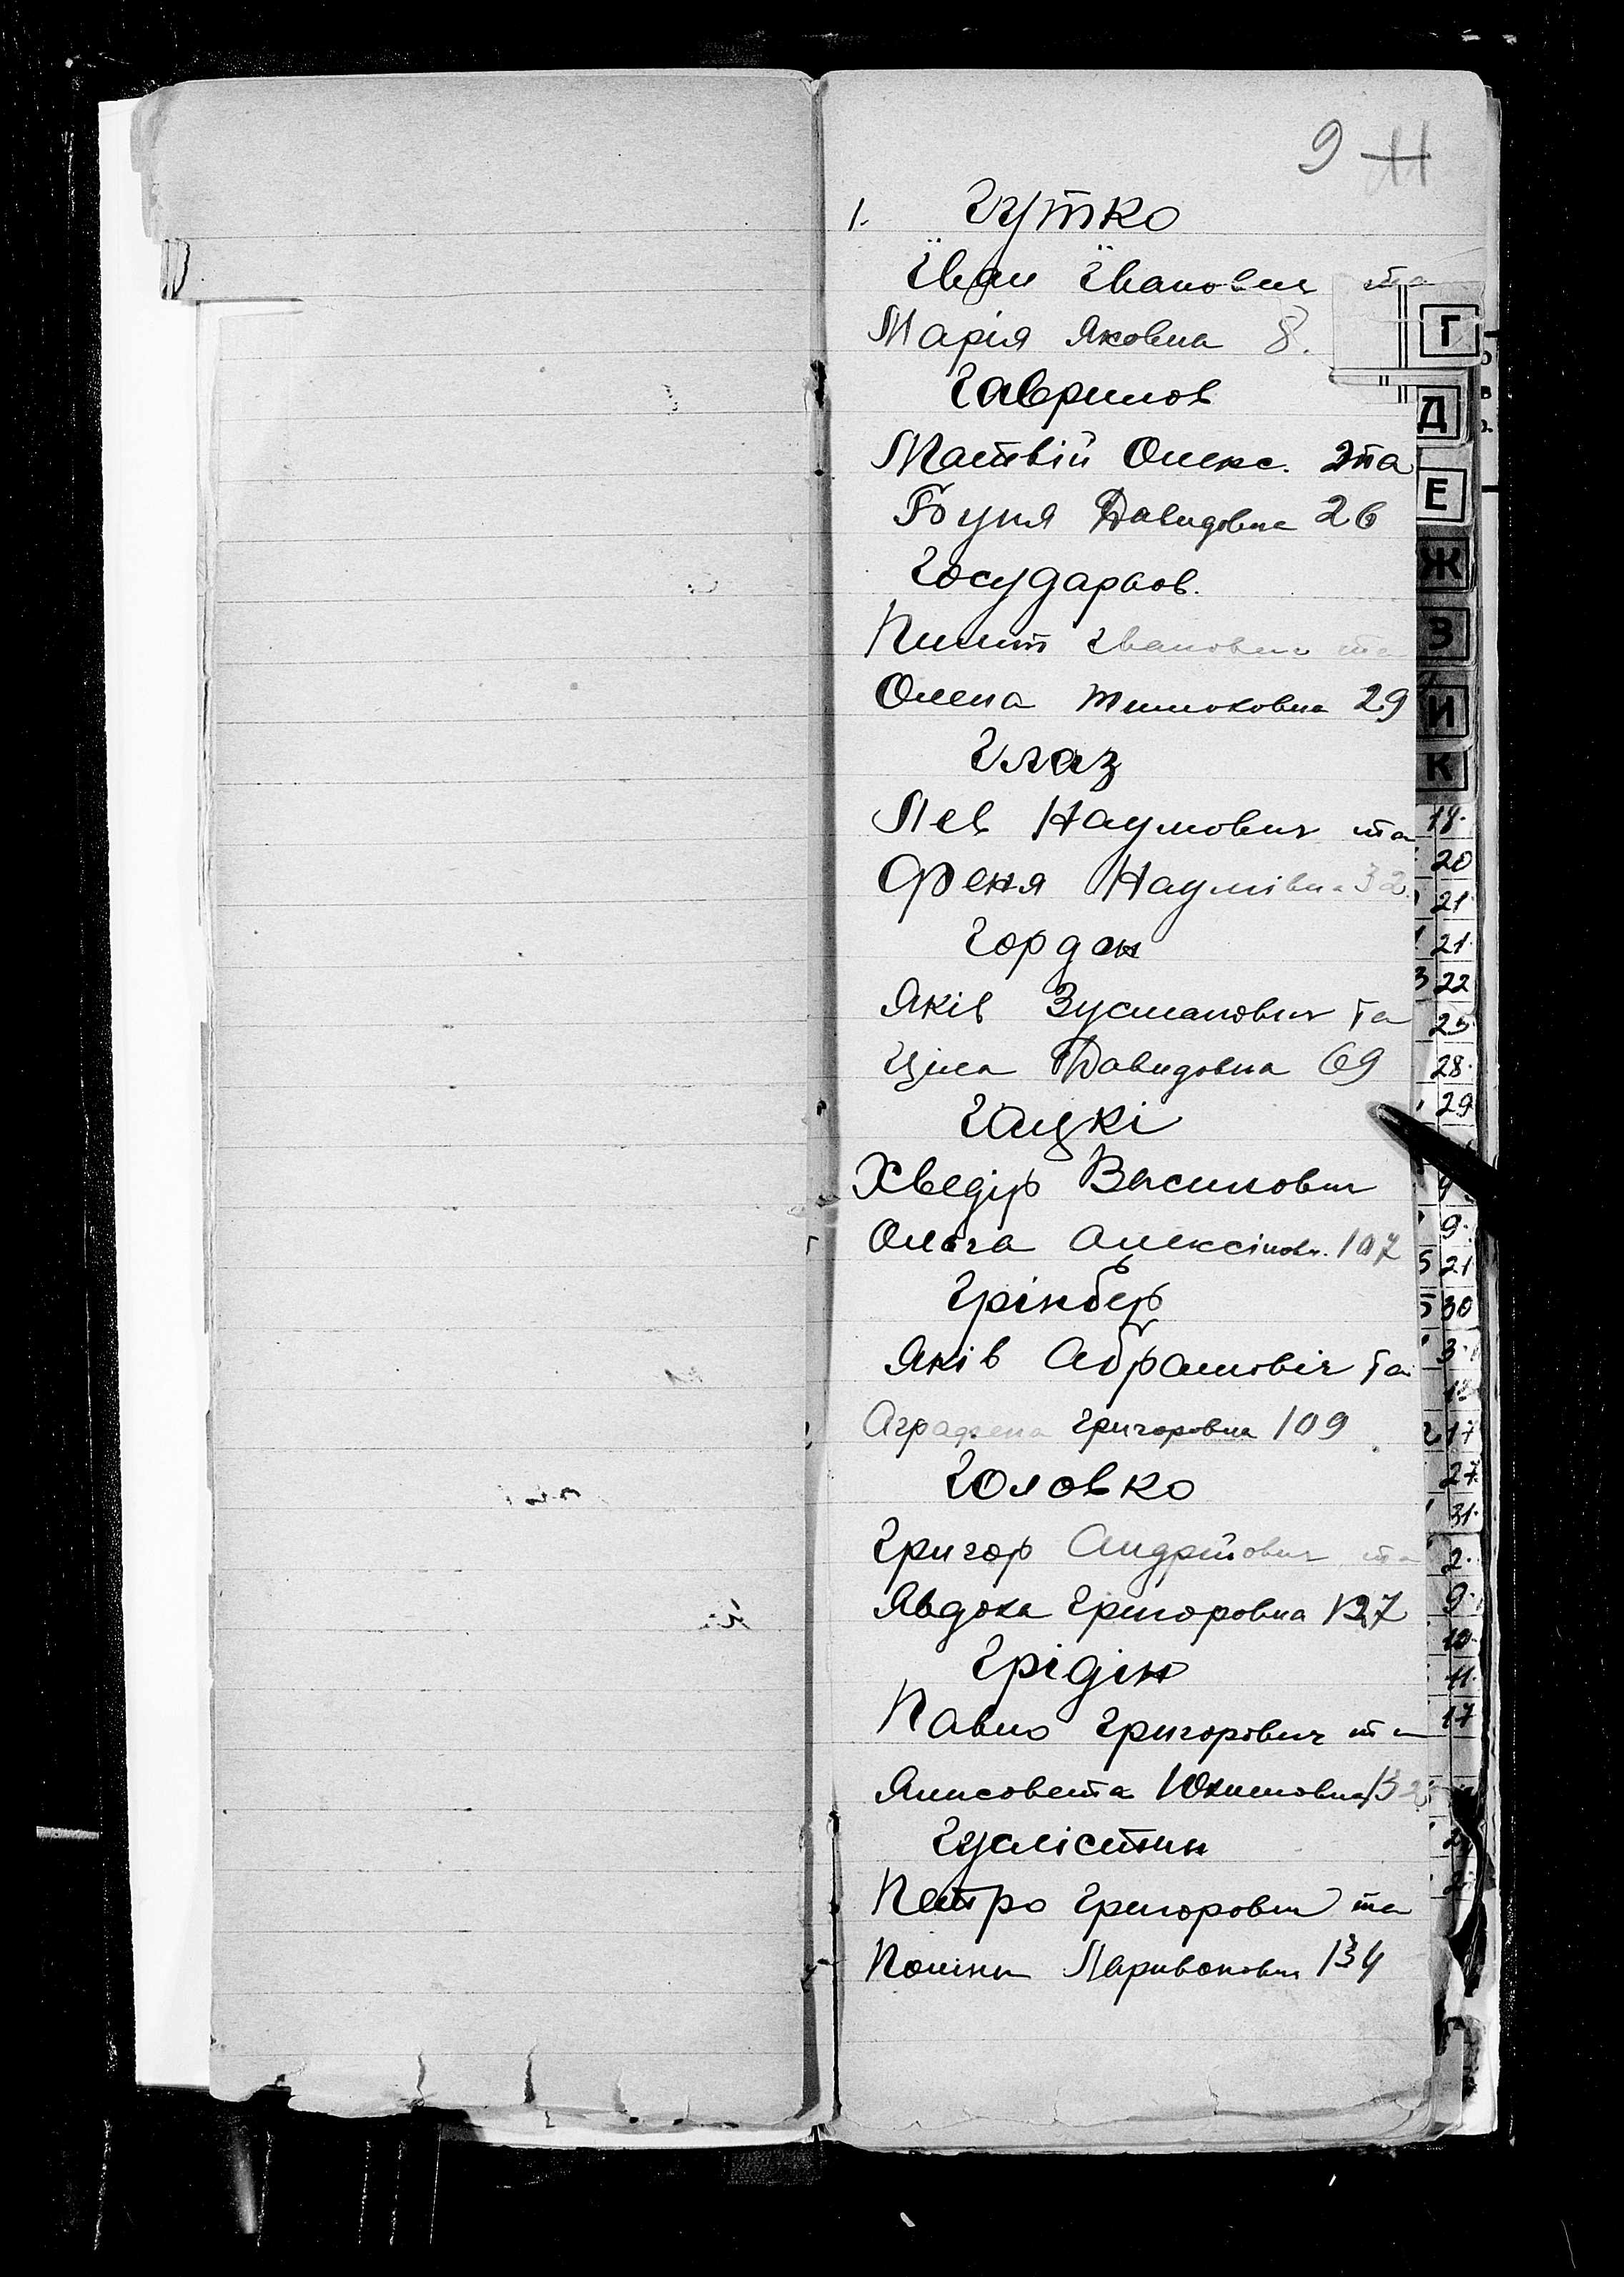 9 11
1. Гутко
Іван Іванович та
Марія Яковна 8.
Г
Гаврилов
Д
Матвій Олекс. та
Е
Буня Давидовна 26
Ж
Государьов.
З
Пилип Іванович та
Олена Тимоховна 29
И
Глаз
К
Лев Наумович та
18.
Феня Наумівна 32
20
21
Гордон
21.
Яків Зусманович та
22
25
Ціля Давидовна 69
28.
Гацкі
29
Хведір Василович
Ольга Олексіївн. 107
9.
21
Грінбер
30
Яків Абрамовіч та
3.
Аграфена Григоровна 109
17
Головко
27.
31.
Григор Андрійович та
2.
Явдоха Григоровна 127
9.
10.
Грідін
11.
Павло Григорович та
17
Ялисовета Юхимовна 132
Гуалістин
Петро Григорович та
Поліна Ларивоновн 134